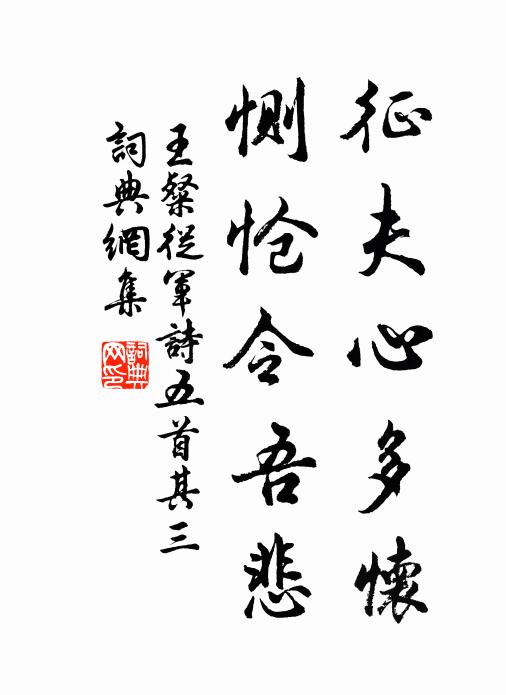 征夫心多懷
惻愴令吾悲
王粲從軍詩五首其三
詞典網集
詞典網印